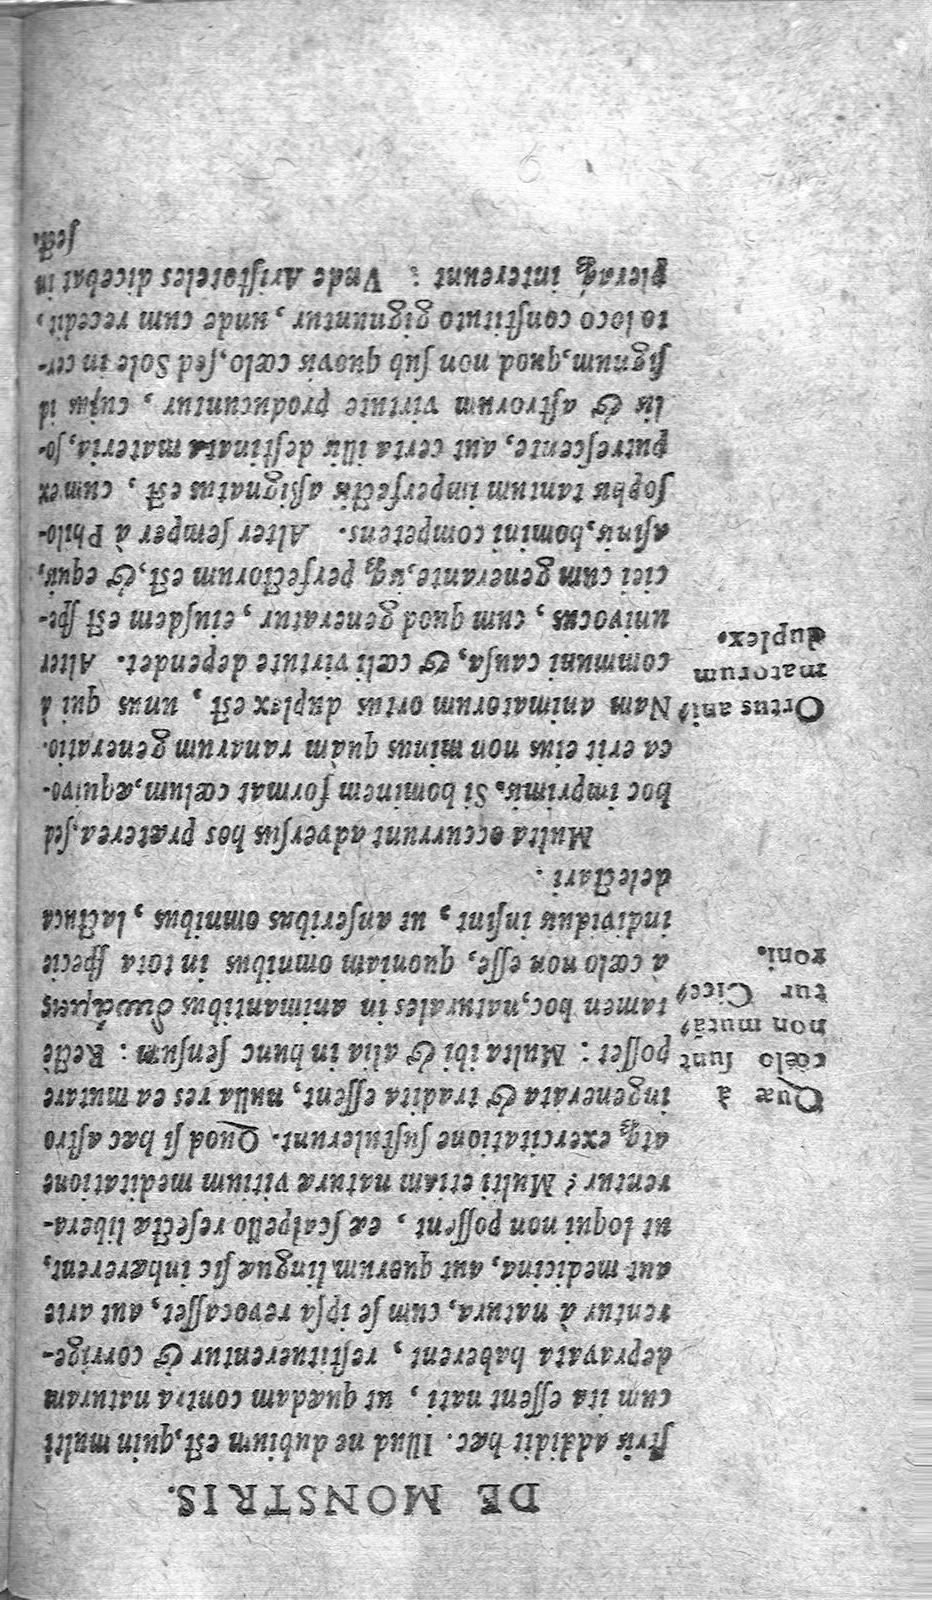 DE MONSTRIS.
ſtris addidit hæc. Illud ne dubium eſt, quin multi
cum ita eſſent nati, ut quædam contra naturam
depravata haberent, reſtituerentur & corrige-
rentur à natura, cum ſe ipſa revocaſſet, aut arte
aut medicina, aut quorum linguæ ſic inhærerent,
ut loqui non poſſent, eæ ſcalpello reſectæ libera-
rentur? Multi etiam naturæ vitium meditatione
atq; exercitatione ſuſtulerunt. Quod ſi hæc aſtro
ingenerata & tradita eſſent, nulla res ea mutare
poſſet: Multa ibi & alia in hunc ſenſum: Rectè
tamen hoc, naturales in animantibus δυνάμεις
à cœlo non eſſe, quoniam omnibus in tota ſpecie
individuis inſint, ut anſeribus omnibus, lactuca
delectari:
Quæ à
cœlo ſunt
non mutã?
tur Cice?
roni.
Multa occurrunt adverſus hos præterea, ſed
hoc imprimis, Si hominem format cœlum, æquivo-
ca erit eius non minus quàm ranarum generatio.
Nam animatorum ortus duplex eſt, unus qui à
communi cauſa, & cœli virtute dependet. Alter
univocus, cum quod generatur, eiuſdem eſt ſpe-
ciei cum generante, isq; perfectiorum eſt, & equis,
aſinis, homini competens. Alter ſemper à Philo-
ſophis tantum imperfectis aßignatus eſt, cum ex
putreſcente, aut certa illis deſtinata materia, ſo-
lis & aſtrorum virtute producuntur, cuius id
ſignum, quod non ſub quovis cœlo, ſed Sole in cer-
to loco conſtituto gignuntur, unde cum recedit,
pleraq; intereunt: Vnde Ariſtoteles dicebat in
ſect.
Ortus ani?
matorum
duplex.